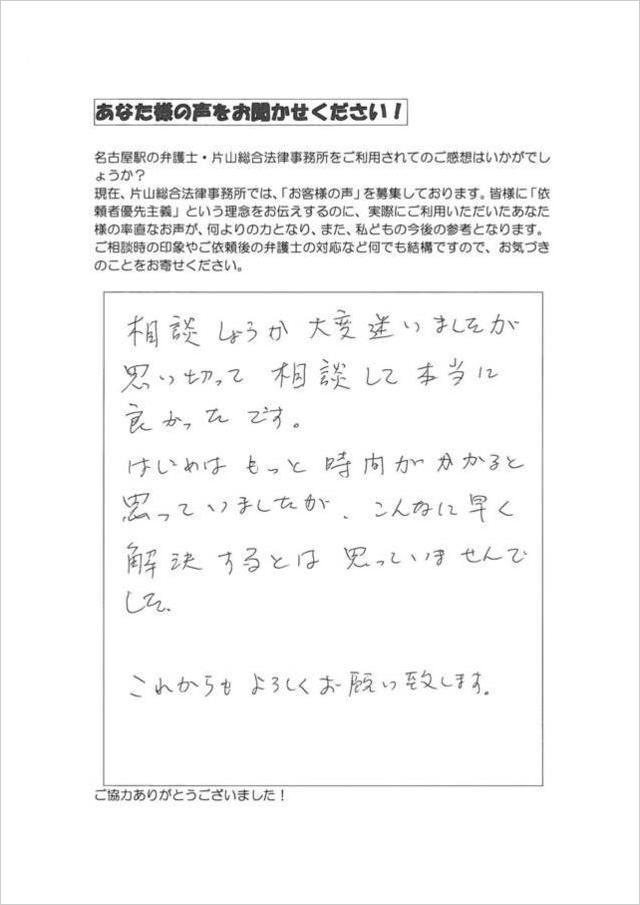 あなた様の声をお聞かせください！
名古屋駅の弁護士・片山総合法律事務所をご利用されてのご感想はいかがでし
ょうか？
現在、片山総合法律事務所では、「お客様の声」を募集しております。皆様に「依
頼者優先主義」という理念をお伝えするのに、実際にご利用いただいたあなた
様の率直なお声が、何よりの力となり、また、私どもの今後の参考となります。
ご相談時の印象やご依頼後の弁護士の対応など何でも結構ですので、お気づき
のことをお寄せください。
相談しょうか 大変迷いましたが
思い切って 相談して 本当に
良かったです。
はじめは もっと 時間がかかると
思っていましたが、こんなに早く
解決するとは 思っていませんで
した。
これからも よろしくお願い致します。
ご協力ありがとうございました！